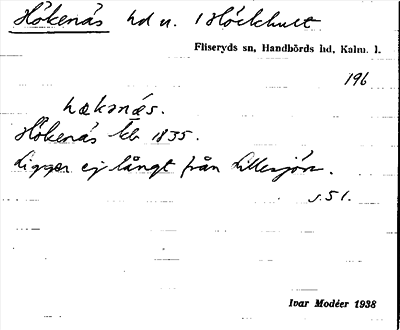 Hökenäs hd u. 1 Höckhult
Fliseryds sn, Handbörds hd, Kalm. l.
196
hækənæ̀s.
Hökenäs kb 1835.
Ligger ej långt från Lillesjön.
s. 51.
Ivar Modéer 1938